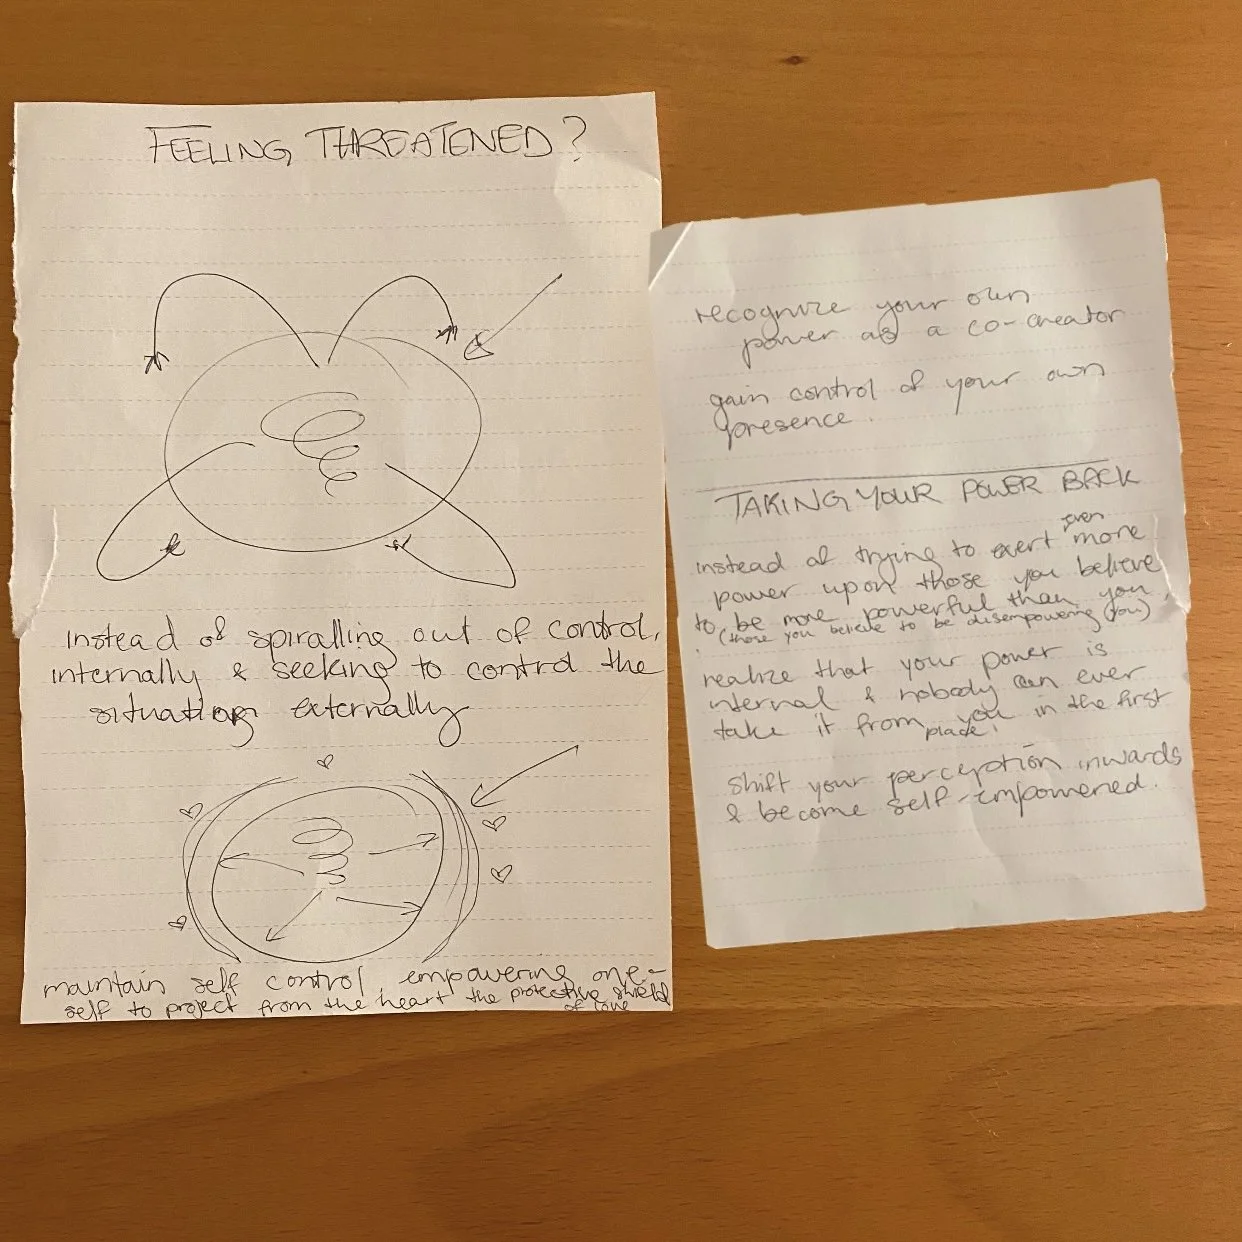 FEELING THREATENED?
instead of spiralling out of control,
internally & seeking to control the
situation externally
maintain self control, empowering one-
self to project from the heart the protective shield
of love
recognize your own
power as a co-creator
gain control of your own
presence.
TAKING YOUR POWER BACK
even
instead of trying to exert more
power upon those you believe
to be more powerful than you,
(those you believe to be disempowering (you)
realize that your power is
internal & nobody can ever
take it from you in the first
place.
shift your perception inwards
& become self-empowered.